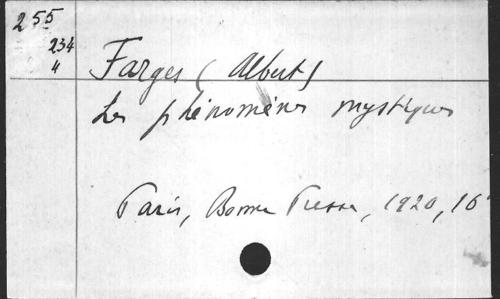 255
234
"
Farges (Albert)
Les phénomènes mystiques
Paris, Bonne Presse, 1920, 16°